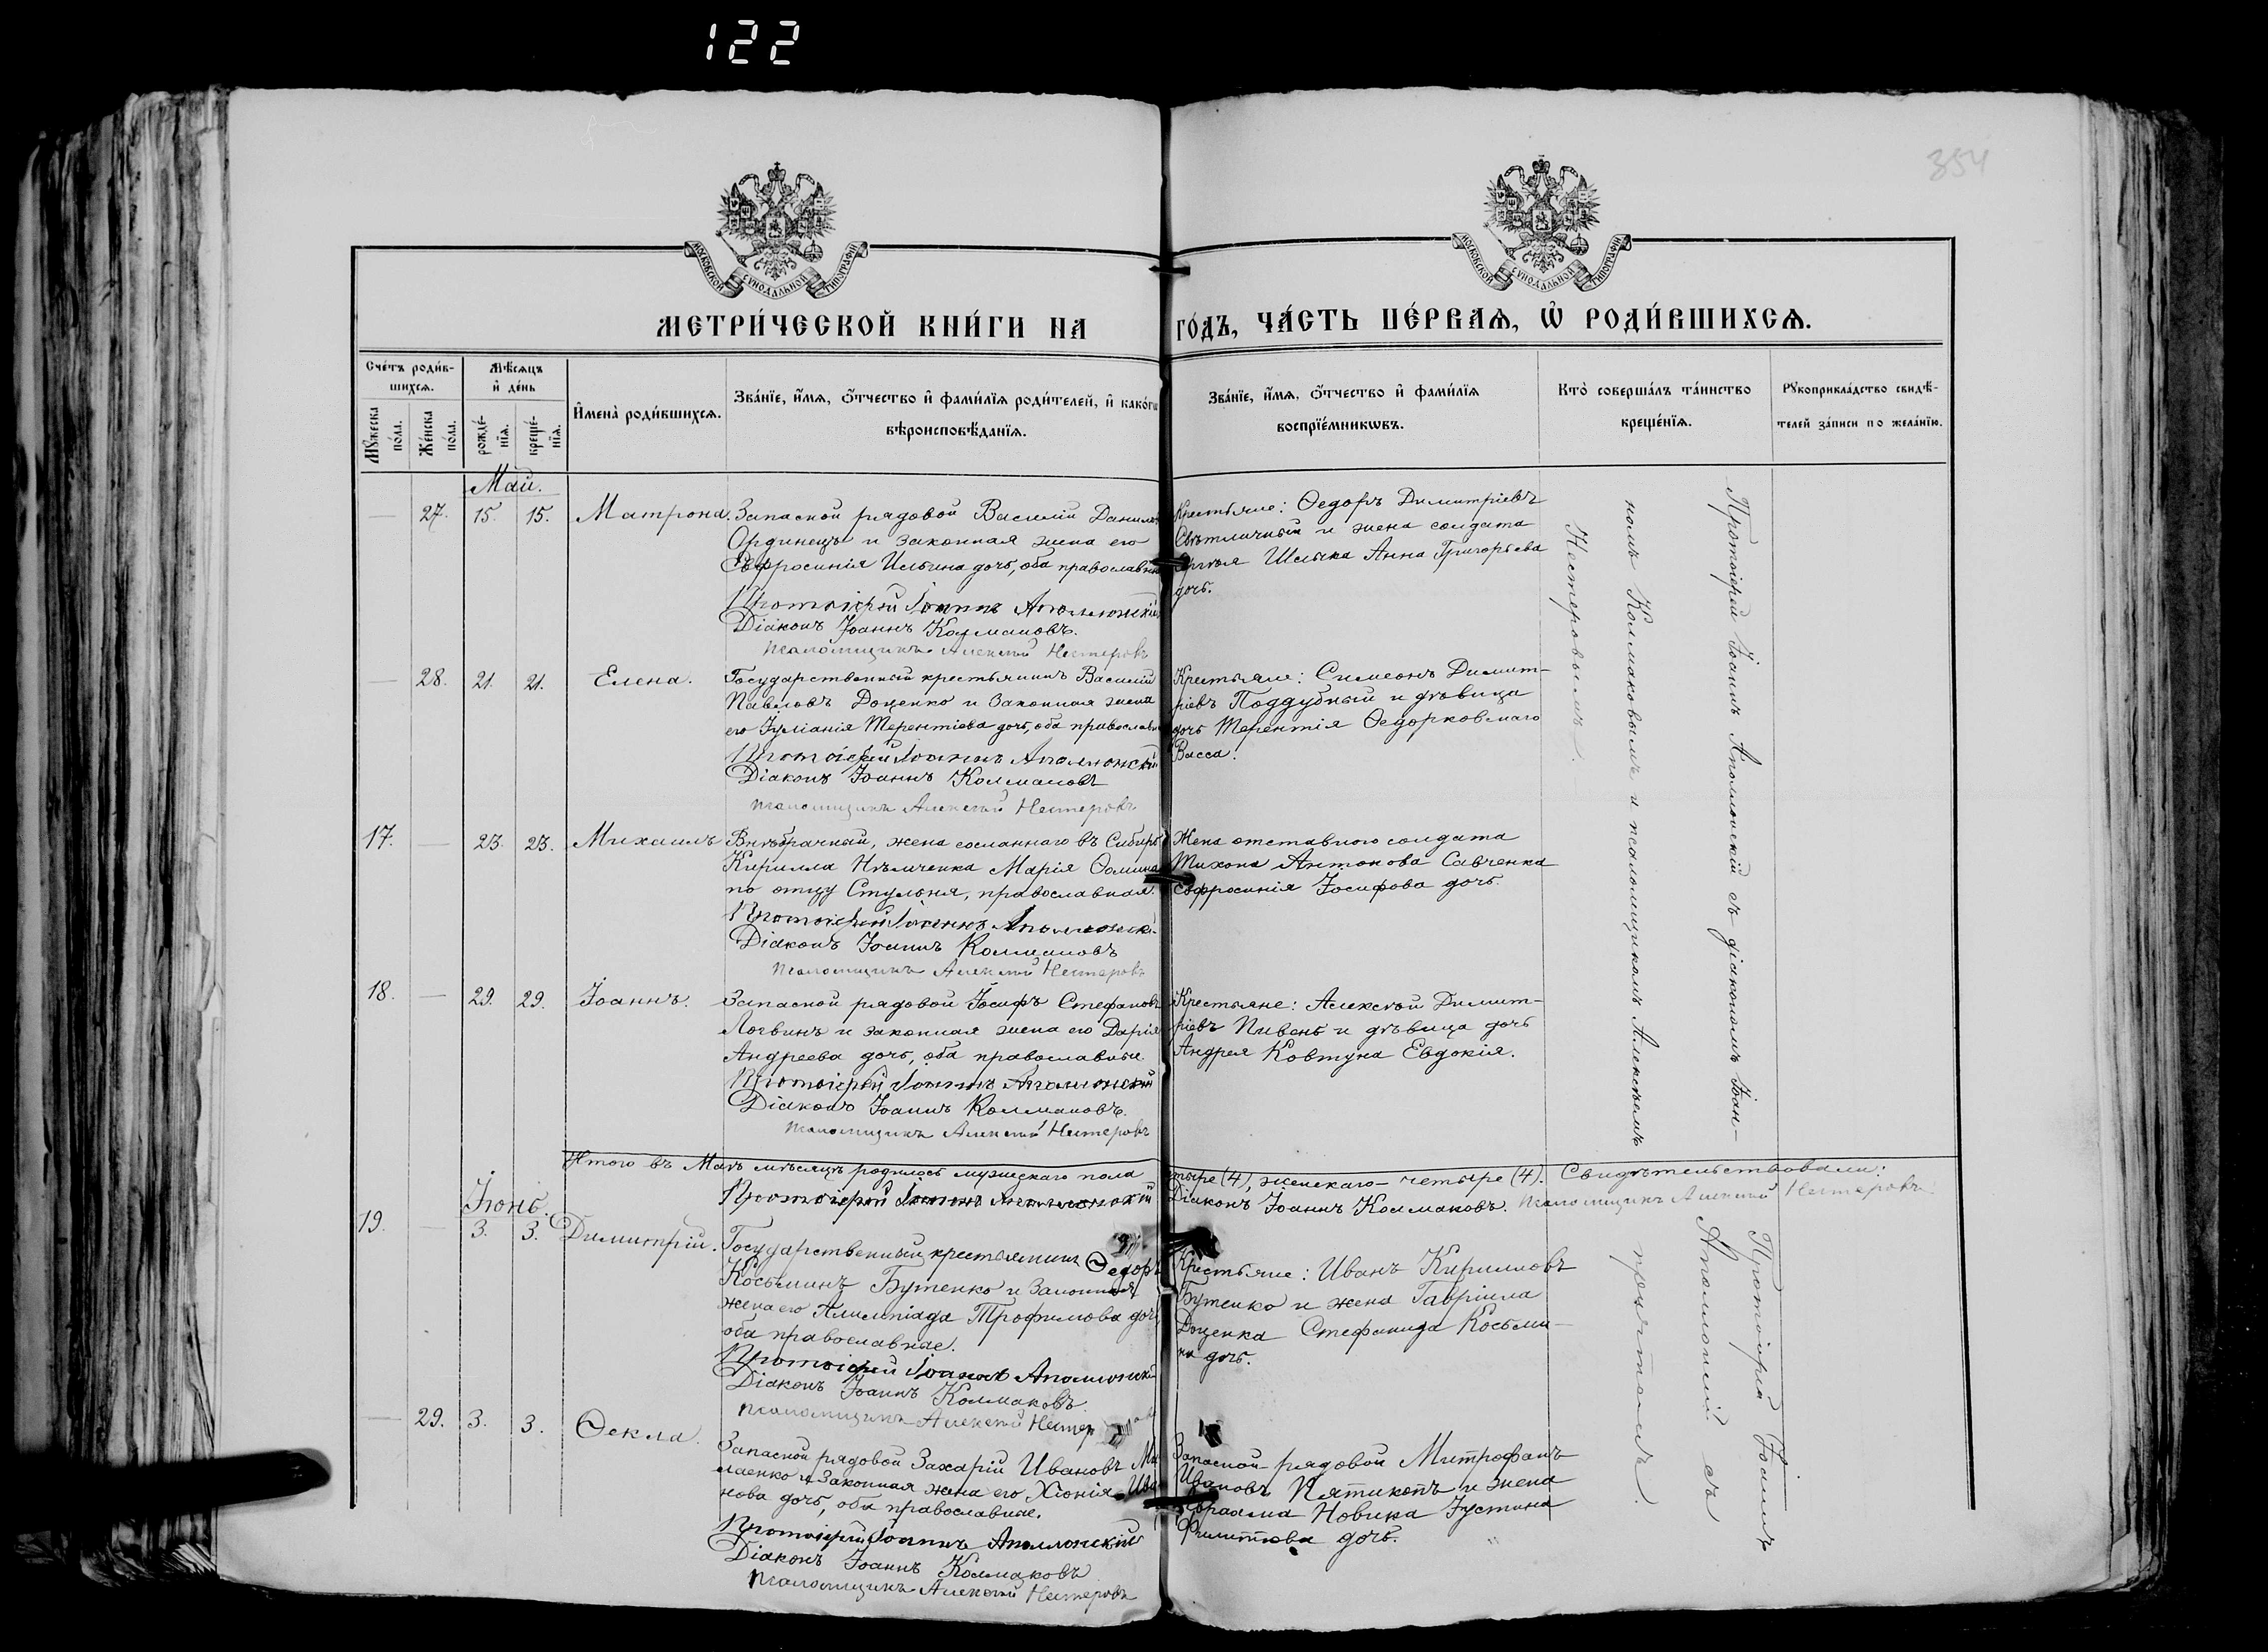 122
354
МОСКОВСКОЙ СѴНОДАЛЬНОЙ ТИПОГРАФІИ
МОСКОВСКОЙ СѴНОДАЛЬНОЙ ТИПОГРАФІИ
МЕТРИ́ЧЕСКОЙ КНИ́ГИ НА
ГО́ДЪ, ЧА́СТЬ ПЕ́РВАѦ, Ѡ҆ РОДИ́ВШИХСѦ.
Сче́тъ роди́в-
шихсѧ.
Мꙋ́жеска по́ла.
Же́нска по́ла.
Мѣ́сѧцъ
и҆ де́нь
рожде́-
нїѧ.
креще́-
нїѧ.
И҆мена̀ роди́вшихсѧ.
Зва́нїе, и҆́мѧ, ѻ҆́тчество и҆ фами́лїѧ роди́телей, и҆ како́гѡ
вѣроисповѣ́данїѧ.
Зва́нїе, и҆́мѧ, ѻ҆́тчество и҆ фами́лїѧ
воспрїе́мникѡвъ.
Кто̀ соверша́лъ та́инство
креще́нїѧ.
Рꙋкоприкла́дство свидѣ́-
телей за́писи по жела́нїю.
Май.
27. 15. 15. Матрона. Запасной рядовой Василій Данилов
Ординецъ и законная жена его
Евфросинія Ильина дочь, оба православные
Протоіерей Іоаннъ Аполлонскій
Діаконъ Іоаннъ Колмаковъ.
Псаломщикъ Алексѣй Нестеровъ
Крестьяне: Ѳедоръ Димитріевъ
Свѣтличный и жена солдата
Шлыка Анна Григорьева
дочь.
28. 21. 21. Елена. Государственный крестьянинъ Василій
Павловъ Доценко и законная жена
его Іуліанія Терентіева дочь, оба православные
Протоіерей Іоаннъ Аполлонскій
Діаконъ Іоаннъ Колмаковъ
Псаломщикъ Алексѣй Нестеровъ
Крестьяне: Симеонъ Димит-
ріевъ Поддубный и дѣвица
дочь Терентія Ѳедорковскаго
Васса.
17. 23. 23. Михаилъ Внѣбрачный, жена сосланнаго въ Сибирь
Кирилла Нѣмченка Марія Ѳомина
по отцу Стульня, православная.
Протоіерей Іоаннъ Аполлонскі
Діаконъ Іоаннъ Колмаковъ
Псаломщикъ Алексѣй Нестеровъ
Жена отставного солдата
Тихона Антонова Савченка
Евфросинія Іосифова дочь.
18. 29. 29. Іоаннъ. Запасной рядовой Іосифъ Стефановъ
Логвинъ и законная жена его Дарія
Андреева дочь, оба православные.
Протоіерей Іоаннъ Аполлонскій
Діаконъ Іоаннъ Колмаковъ.
Псаломщикъ Алексѣй Нестеровъ
Крестьяне: Алексѣй Димит-
ріевъ Пивень и дѣвица дочь
Андрея Ковтуна Евдокія.
Протоіерей Іоаннъ Аполлонскій съ діакономъ Іоан-
номъ Колмаковымъ и псаломщикомъ Алексѣемъ
Нестеровымъ.
Итого въ Маѣ мѣсяцѣ родилось мужескаго пола
тыре (4), женскаго – четыре (4). Свидѣтельствовали:
Протоіерей Іоаннъ Аполлонскій
Діаконъ Іоаннъ Колмаковъ. Псаломщикъ Алексѣй Нестеровъ
Іюнь.
19. 3. 3. Димитрій. Государственный крестьянинъ Ѳедоръ
Косьминъ Бутенко и законная
жена его Алимпіада Трофимова дочь
оба православные.
Протоіерей Іоаннъ Аполлонскій
Діаконъ Іоаннъ Колмаковъ.
Псаломщикъ Алексѣй Нестеров
Крестьяне: Иванъ Кирилловъ
Бутенко и жена Гавріила
Доценка Стефанида Косьми-
на дочь.
29. 3. 3. Ѳекла. Запасной рядовой Захарій Ивановъ Ми
лаенко и законная жена его Хіонія Ива
нова дочь, оба православные.
Протоіерей Іоаннъ Аполлонскій
Діаконъ Іоаннъ Колмаковъ
Псаломщикъ Алексѣй Нестеровъ
Запасной рядовой Митрофанъ
Ивановъ Пятикопъ и жена
Авраама Новика Іустина
Филиппова дочь.
Протоіерей Іоаннъ
Аполлонскій съ
причтомъ.